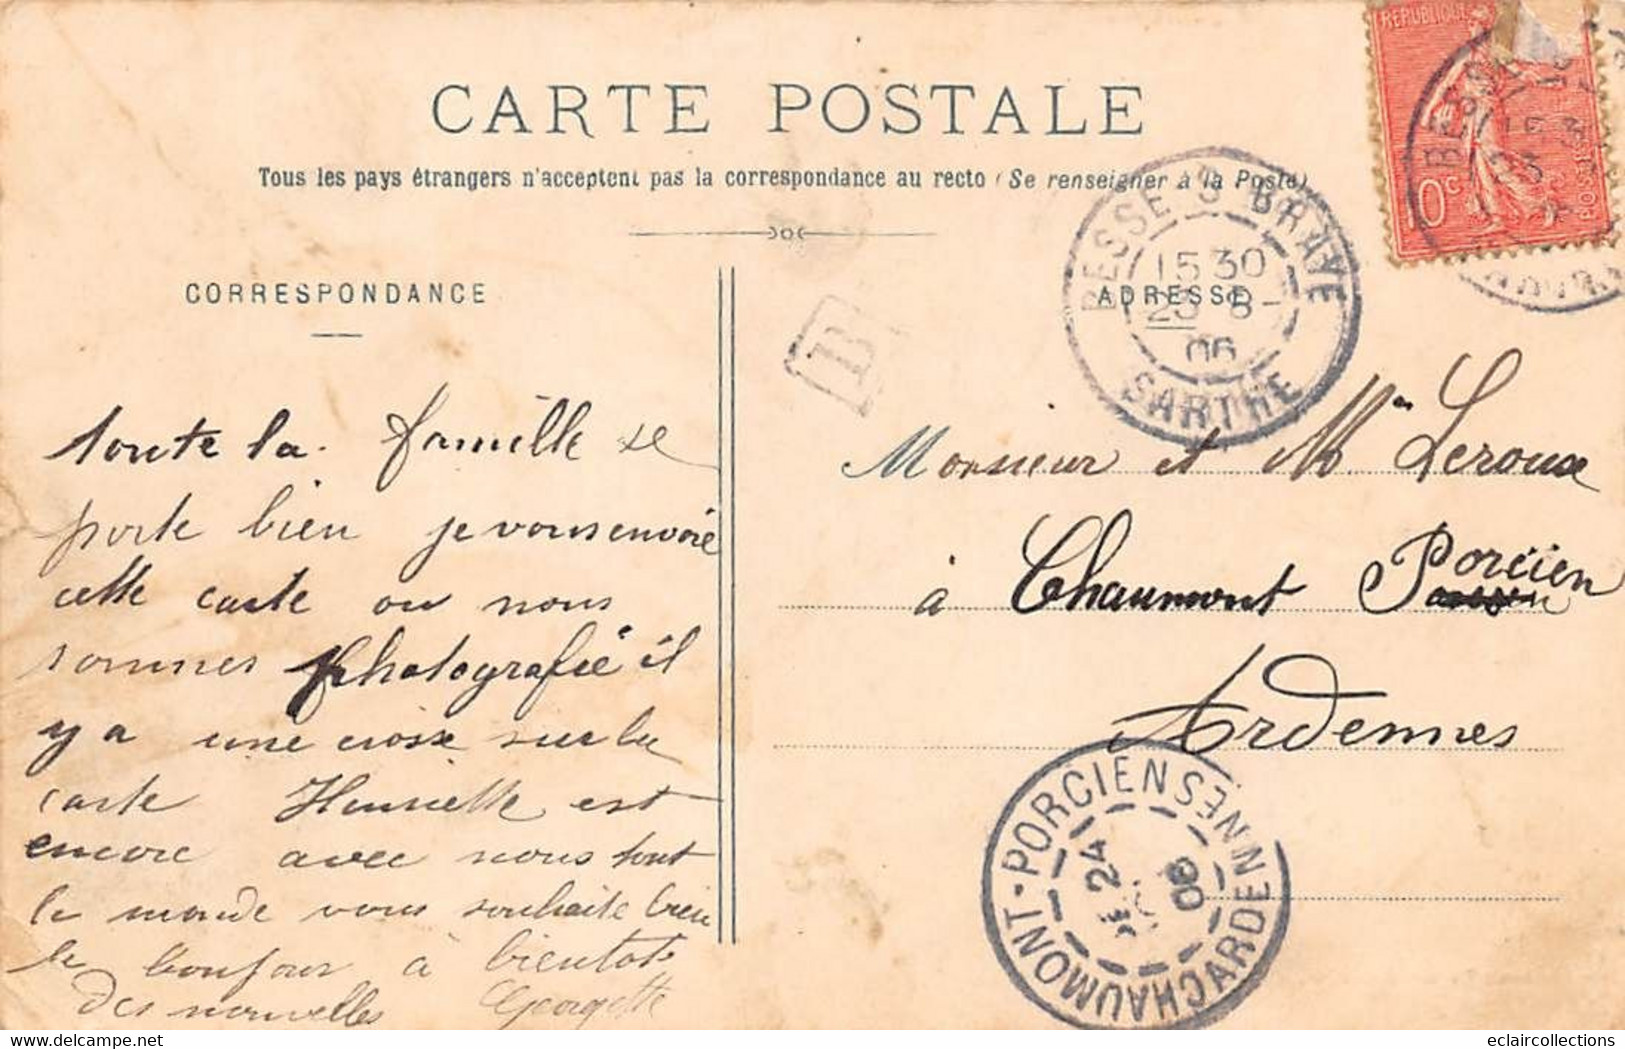 CARTE POSTALE
Tous les pays étrangers n'acceptent pas la correspondance au recto (Se renseigner à la Poste)
CORRESPONDANCE
toute la famille se
porte bien je vous envoie
cette carte ou nous
sommes photografié il
y a une croix sur la
carte Henriette est
encore avec nous tout
le monde vous souhaite bien
le bonjour à bientot
des nouvelles Georgette
REPUBLIQUE
10c
POSTES
B
BESSE S BRAYE
15 30
23 8
06
SARTHE
ADRESSE
Monsieur et Mme Leroux
à Chaumont Porcien
Ardennes
CHAUMONT-PORCIEN
ARDENNES
24
06
delcampe.net
eclaircollections